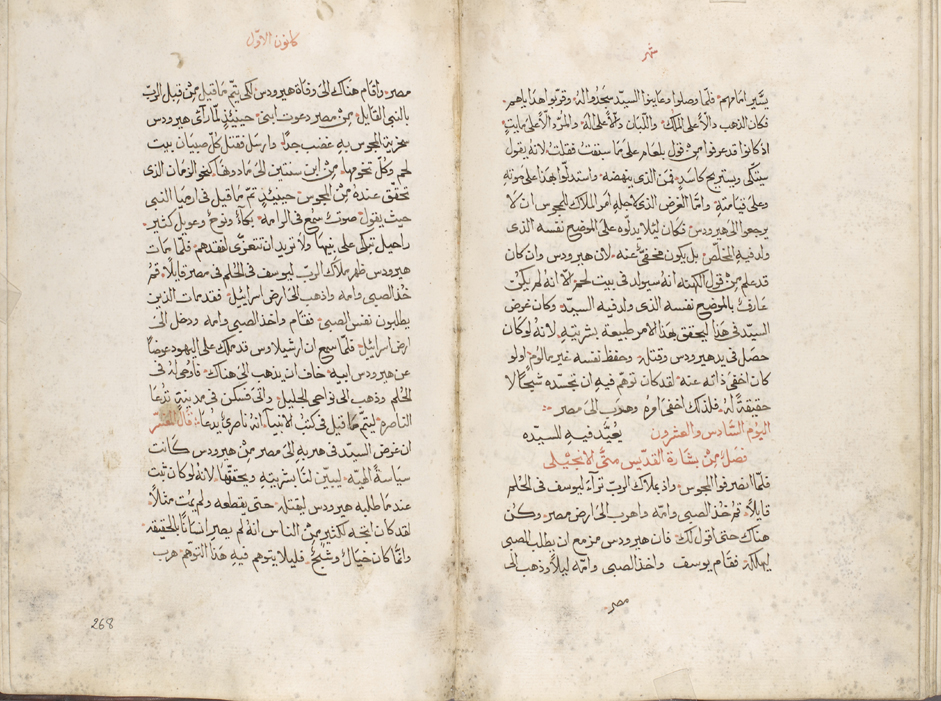 شهر
يسير امامهم فلما وصلوا وعاينوا السيد سجدوا له وقربوا هداياهم
فكان الذهب دالا على الملك واللبان دالا على اله والمر دالا على مايت
اذ كانوا قد عرفوا من قول بلعام على ما سبقت فقلت لانه يقول
سيتكي ويستريح كاسد فمن الذي ينهضه واستدلوا بهذا على موته
وعلى قيامته واما الغرض الذي لاجله امر الملاك المجوس ان لا
يرجعوا الى هيرودس فكان ليلا يدلوه على الموضع نفسه الذى
ولد فيه المخلص بل يكون مخفى عنه لان هيرودس وان كان
قد علم من قول الكهنه انه سيولد في بيت لحم الا انه لم يكن
عارف بالموضع نفسه الذى ولد فيه السيد وكان غرض
السيد في هذا ليحقق بهذا الامر طبيعة بشريته لانه لو كان
حصل في يد هيرودس وقتله وحفظ نفسه غير مالوم اولو
كان اخفى ذاته عنه لقد كان توهم فيه ان تجسده شبحا لا
حقيقة له فلذلك اخفى امره وهرب الى مصر
اليوم السادس والعشرون يعيد فيه للسيده
فصل من بشارة القديس متى الانجيلى
فلما انصرفوا المجوس واذ بملاك الرب تراءى ليوسف في الحلم
قايلا قم خذ الصبى وامه واهرب الى ارض مصر وكن
هناك حتى اقول لك فان هيرودس مزمع ان يطلب الصبى
ليهلكه فقام يوسف واخذ الصبى وامه ليلا وذهب الى
مصر
كانون الاول
مصر واقام هناك الى وفاة هيرودس لكى يتم ما قيل من قبل الرب
بالنبى القايل من مصر دعوت ابنى حينيذ لما راى هيرودس
سخرية المجوس به غضب جدا وارسل فقتل كل صبيان بيت
لحم وكل تخومها من ابن سنتين الى ما دونها كنحو الزمان الذى
تحقق عنده من المجوس حينيذ تم ما قيل في ارميا النبى
حيث يقول صوت سمع في الرامه بكاء ونوح وعويل كثير
راحيل تبكى على بنيها ولا تريد ان تتعزى لفقدهم فلما مات
هيرودس ظهر ملاك الرب ليوسف في الحلم في مصر قايلا قم
خذ الصبى وامه واذهب الى ارض اسراييل فقد مات الذين
يطلبون نفس الصبى فقام واخذ الصبى وامه ودخل الى
ارض اسراييل فلما سمع ان ارشيلاوس قد ملك على اليهود عوضا
عن هيرودس ابيه خاف ان يذهب الى هناك فاوحى له في
الحلم وذهب الى نواحى الجليل واتى فسكن في مدينة تدعا
الناصره ليتم ما قيل في كتب الانبيا انه ناصرى يدعا قال المفسر
ان غرض السيد في هربه الى مصر من هيرودس كانت
سياسة الهيه ليبين لنا بشريته ويحققها لانه لو كان ثبت
عند ما طلبه هيرودس ليقتله حتى يقطعه ولم يمت مثلا
لقد كان اتجه لكثير من الناس انه لم يصر انسانا بالحقيقه
وانما كان خيال وشبح فليلا يتوهم فيه هذا التوهم هرب
268